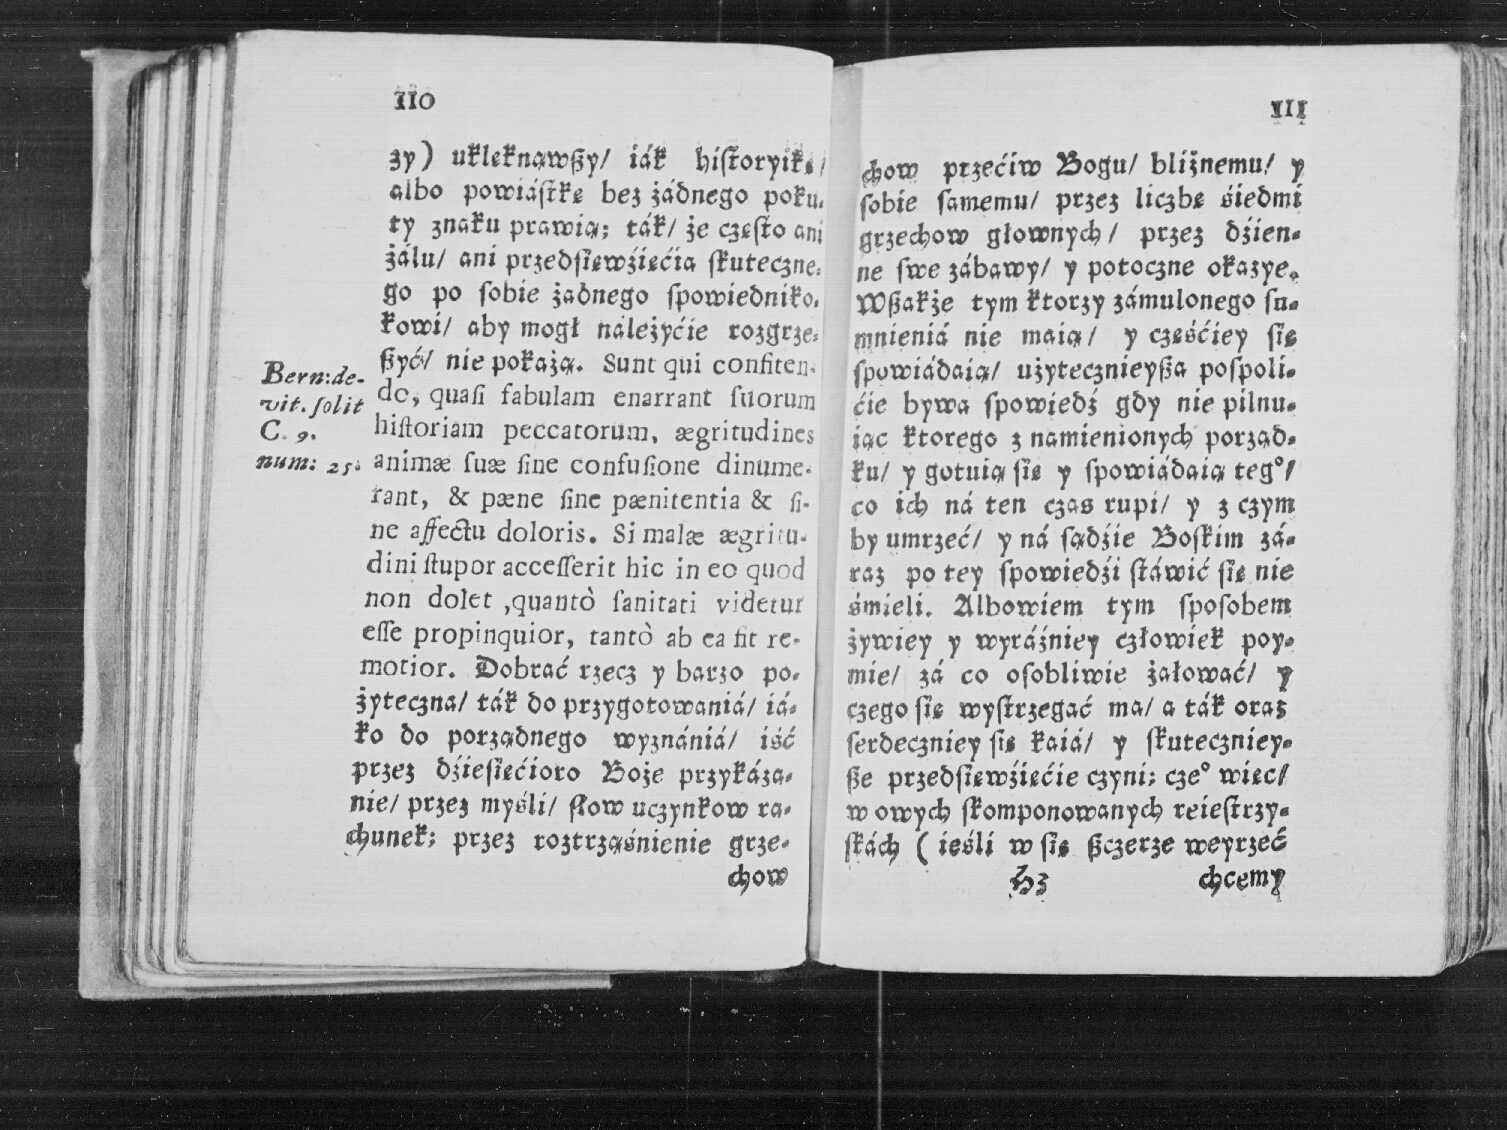 110
zy) uklęknąwßy/ iák historyikę/
albo powiástkę bez żádnego poku-
ty znaku prawią; ták/ że często ani
żálu/ ani przedsięwźięćia skuteczne-
go po sobie żadnego spowiedniko-
kowi/ aby mogł náleżyćie rozgrze-
ßyć/ nie pokażą. Sunt qui confiten-
do, quaſi fabulam enarrant ſuorum
hiſtoriam peccatorum, ægritudines
animæ ſuæ ſine confuſione dinume-
rant, & pæne ſine pænitentia & ſi-
ne affectu doloris. Si malæ ægritu-
dini ſtupor acceſſerit hic in eo quod
non dolet ,quantò ſanitati videtur
eſſe propinquior, tantò ab ea fit re-
motior. Dobrać rzecz y barzo po-
żyteczna/ ták do przygotowaniá/ iá-
ko do porządnego wyznániá/ iść
przez dźieſięćioro Boże przykáza-
nie/ przez myśli/ ſłow uczynkow ra-
chunek; przez roztrząśnienie grze-
chow
Bern:de-
vit. ſolit
C. 9.
num: 25.
111
chow przećiw Bogu/ bliźnemu/ y
ſobie ſamemu/ przez liczbę śiedmi
grzechow głownych/ przez dźien-
ne ſwe zábawy/ y potoczne okazye.
Wßakże tym ktorzy zámulonego ſu-
mnieniá nie maią/ y częśćiey ſię
ſpowiádaią/ użytecznieyßa poſpoli-
ćie bywa ſpowiedź gdy nie pilnu-
iąc ktorego z namienionych porząd-
ku/ y gotuią ſię y ſpowiádaią tegº/
co ich ná ten czas rupi/ y z czym
by umrzeć/ y ná ſądźie Boſkim zá-
raz po tey ſpowiedźi ſtáwić ſię nie
śmieli. Albowiem tym ſpoſobem
żywiey y wyráźniey człowiek poy-
mie/ zá co oſobliwie żałować/ y
czego ſię wyſtrzegać ma/ a ták oraz
ſerdeczniey ſię kaiá/ y ſkuteczniey-
ße przedſięwźięćie czyni; czeº więc/
w owych ſkomponowanych reieſtrzy-
ſkách ( ieśli w ſię ßczerze weyrzeć
H3 chcemy